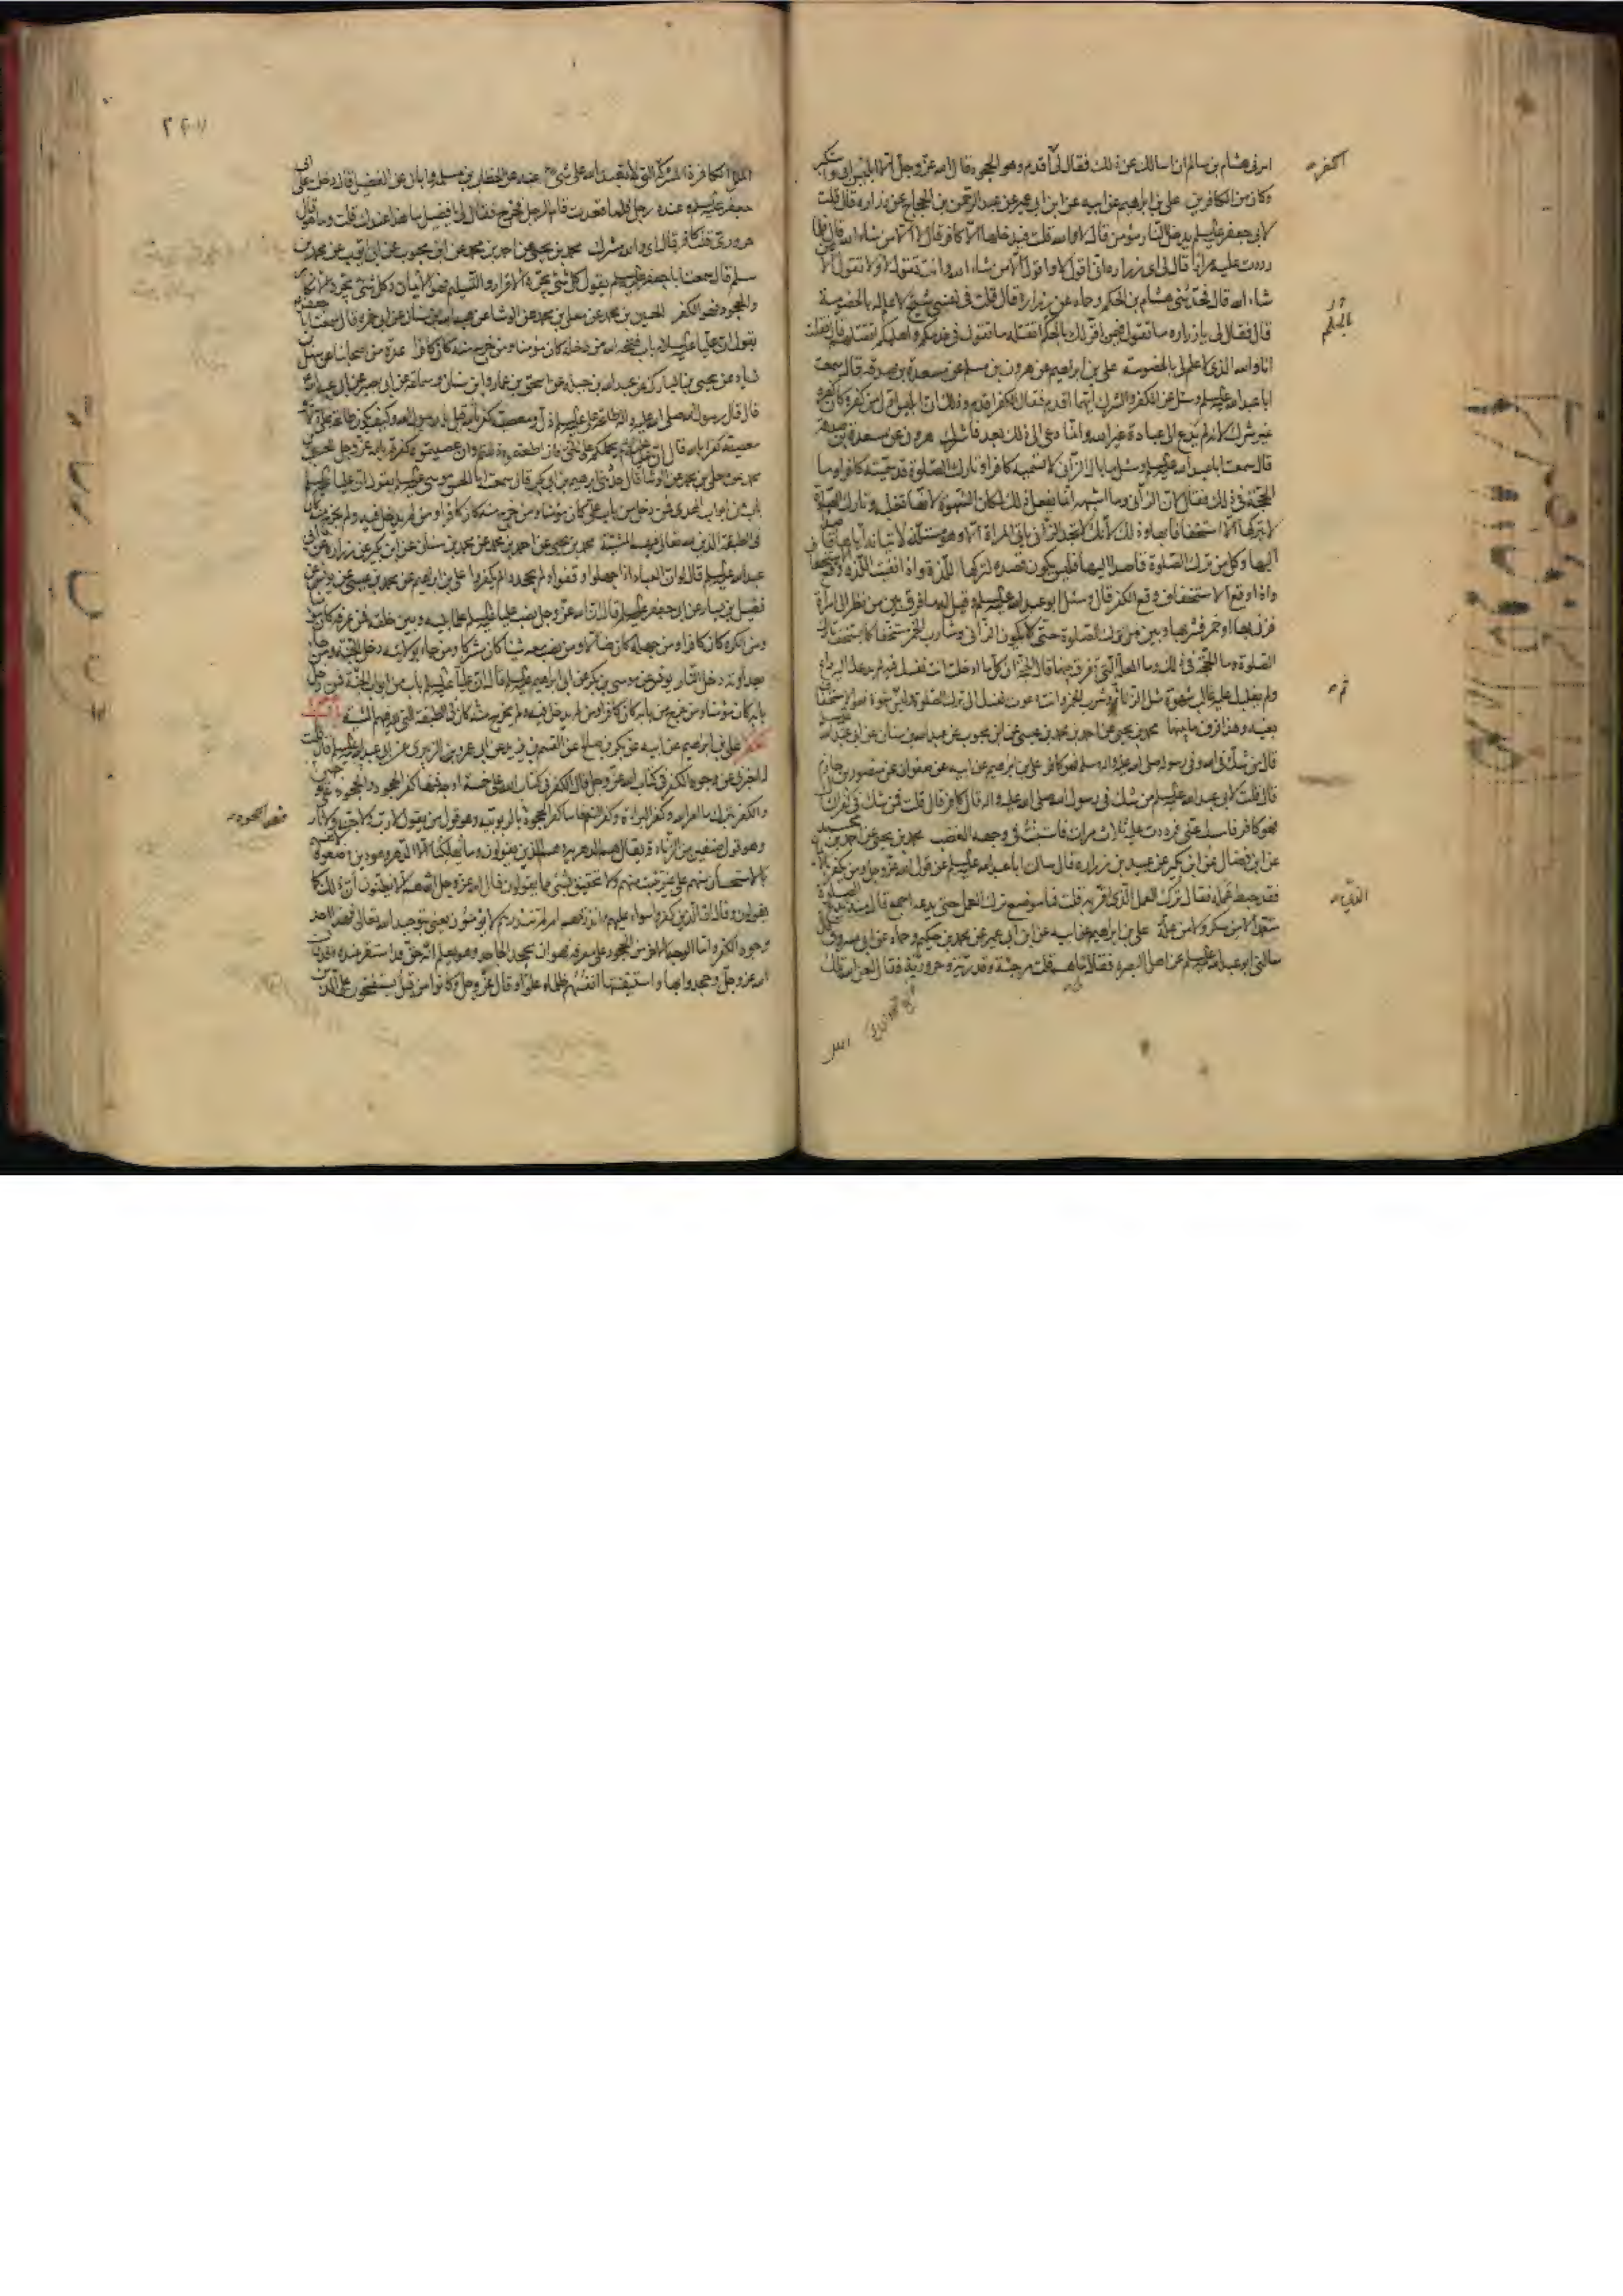 امرنى هشام بن سالم ان اسالك عن ذلك فقال لى اقدم وهو الجحود قال الله عز وجل الا ابليس ابى واستكبر
وكان من الكافرين على بن ابراهيم عن ابيه عن ابن ابى عمير عن عبد الرحمن بن الحجاج عن زراره قال قلت
لابى جعفر عليه السلم يدخل النار مؤمن قال لا والله قلت فيدخلها الا كافر قال لا الا من شاء الله قال فلما
رددت عليه مرارا قال لى اى زراره انى اقول لا واقول الا من شاء الله وانت تقول لا ولا تقول الا من
شاء الله قال فحدثنى هشام بن الحكم وحماد عن زرارة قال قلت فى نفسى شيخ لا علم له بالخصومة
قال فقال لى يا زراره ما تقول فيمن اقر لك بالحكم اتقتله ما تقول فى خدمكم واهليكم اتقتلهم قال فقلت
انا والله الذى لا علم لى بالخصومة على بن ابراهيم عن هرون بن مسلم عن مسعدة بن صدقه قال سمعت
ابا عبد الله عليه السلم وسئل عن الكفر والشرك ايهما اقدم فقال الكفر اقدم وذلك ان ابليس اول من كفر وكان كفره
غير شرك لانه لم يدع الى عبادة غير الله وانما دعى الى ذلك بعد فاشرك هرون عن مسعدة بن صدقه
قال سمعت ابا عبد الله عليه السلم وسئل ما بال الزانى لا تسميه كافرا وتارك الصلوة قد سميته كافرا وما
الحجة فى ذلك فقال لان الزانى وما اشبهه انما يفعل ذلك لمكان الشهوة لانها تغلبه وتارك الصلوة
لا يتركها الا استخفافا بها وذلك لانك لا تجد الزانى ياتى المراة الا وهو مستلذ لاتيانه اياها قاصدا
اليها وكل من ترك الصلوة قاصدا اليها فليس يكون قصده لتركها اللذة فاذا نفيت اللذة وقع الاستخفاف
واذا وقع الاستخفاف وقع الكفر قال وسئل ابو عبد الله عليه السلم وقيل له ما فرق بين من نظر الى امراة
فزنى بها او خمر فشربها وبين من ترك الصلوة حتى لا يكون الزانى وشارب الخمر مستخفا كما يستخف تارك
الصلوة وما الحجة فى ذلك وما العلة التى تفرق بينهما قال الحجة ان كلما ادخلت انت نفسك فيه لم يدعك اليه داع
ولم يغلبك عليه غالب شهوة مثل الزنا وشرب الخمر وانت دعوت نفسك الى ترك الصلوة وليس ثم شهوة فهو الاستخفاف
بعينه وهذا فرق ما بينهما محمد بن يحيى عن احمد بن محمد بن عيسى عن ابن محبوب عن عبد الله بن سنان عن ابى عبد الله
قال من شك فى الله وفى رسوله صلى الله عليه واله وسلم فهو كافر على بن ابراهيم عن ابيه عن صفوان عن منصور بن حازم
قال قلت لابى عبد الله عليه السلم من شك فى رسول الله صلى الله عليه واله قال كافر قال قلت فمن شك فى كفر الشاك
فهو كافر فامسك عنى فرددت عليه ثلاث مرات فاستبنت فى وجهه الغضب محمد بن يحيى عن احمد بن محمد
عن ابن فضال عن ابن بكير عن عبيد بن زراره قال سالت ابا عبد الله عليه السلم عن قول الله عز وجل ومن يكفر بالايمان
فقد حبط عمله فقال ترك العمل الذى اقر به قلت فما موضع ترك العمل حتى يدعه اجمع قال منه الذى يدع الصلوة
متعمدا لا من سكر ولا من علة على بن ابراهيم عن ابيه عن ابن ابى عمير عن محمد بن حكيم وحماد عن ابى مسروق قال
سالنى ابو عبد الله عليه السلم عن اهل البصره فقال لى ما هم قلت مرجئة وقدرية وحرورية فقال لعن الله تلك
الكفر
ثم
الملل الكافرة المشركة التى لا تعبد الله على شئ عنه عن الخطاب بن مسلمة وابان عن الفضيل قال دخلت على ابى
جعفر عليه السلم وعنده رجل فلما قعدت قام الرجل فخرج فقال لى يا فضيل ما هذا عندك قلت وما هو قال
حرورى قلت كافر قال اى والله مشرك محمد بن يحيى عن احمد بن محمد عن ابن محبوب عن ابى ايوب عن محمد بن
مسلم قال سمعت ابا جعفر عليه السلم يقول كل شئ يجره الاقرار والتسليم فهو الايمان وكل شئ يجره الانكار
والجحود فهو الكفر الحسين بن محمد عن معلى بن محمد عن الوشا عن عبد الله بن سنان عن ابى حمزه قال سمعت ابا جعفر
يقول ان عليا عليه السلام باب فتحه الله من دخله كان مؤمنا ومن خرج منه كان كافرا عدة من اصحابنا عن سهل بن
زياد عن يحيى بن المبارك عن عبد الله بن جبله عن اسحق بن عمار وابن سنان وسماعة عن ابى بصير عن ابى عبد الله
قال قال رسول الله صلى الله عليه واله طاعة على عليه السلم ذل ومعصيته كفر بالله قيل يا رسول الله وكيف يكون طاعة على ذلا
ومعصيته كفرا بالله قال ان عليا يحملكم على الحق فان اطعتموه ذللتم وان عصيتموه كفرتم بالله عز وجل الحسين بن
محمد عن معلى بن محمد عن الوشا قال حدثنى ابراهيم بن ابى بكر قال سمعت ابا الحسن موسى عليه السلم يقول ان عليا عليه السلم
باب من ابواب الهدى فمن دخل من باب على كان مؤمنا ومن خرج منه كان كافرا ومن لم يدخل فيه ولم يخرج منه كان
فى الطبقة الذين لله تعالى فيهم المشية محمد بن يحيى عن احمد بن محمد عن محمد بن سنان عن ابن بكير عن زراره عن ابى
عبد الله عليه السلم قال لو ان العباد اذا جهلوا وقفوا ولم يجحدوا لم يكفروا على بن ابراهيم عن محمد بن عيسى عن يونس عن
فضيل بن يسار عن ابى جعفر عليه السلم قال ان الله عز وجل نصب عليا عليه السلم علما بينه وبين خلقه فمن عرفه كان مؤمنا
ومن انكره كان كافرا ومن جهله كان ضالا ومن نصب معه شيئا كان مشركا ومن جاء بولايته دخل الجنة ومن جاء
بعداوته دخل النار يونس عن موسى بن بكر عن ابى ابراهيم عليه السلم قال ان عليا عليه السلم باب من ابواب الجنة فمن دخل
بابه كان مؤمنا ومن خرج من بابه كان كافرا ومن لم يدخل فيه ولم يخرج منه كان فى الطبقة التى لله فيهم المشية باب وجوه
الكفر على بن ابراهيم عن ابيه عن بكر بن صالح عن القسم بن يزيد عن ابى عمرو الزبيرى عن ابى عبد الله عليه السلم قال قلت
له اخبرنى عن وجوه الكفر فى كتاب الله عز وجل قال الكفر فى كتاب الله على خمسة اوجه فمنها كفر الجحود والجحود على وجهين
والكفر بترك ما امر الله وكفر البراءة وكفر النعم فاما كفر الجحود فهو الجحود بالربوبية وهو قول من يقول لا رب ولا جنة ولا نار
وهو قول صنفين من الزنادقه يقال لهم الدهرية وهم الذين يقولون وما يهلكنا الا الدهر وهو دين وضعوه لانفسهم
بالاستحسان منهم على غير تثبت منهم ولا تحقيق لشئ مما يقولون قال الله عز وجل ان هم الا يظنون ان ذلك كما
يقولون وقال ان الذين كفروا سواء عليهم ءانذرتهم ام لم تنذرهم لا يؤمنون يعنى بتوحيد الله تعالى فهذا احد
وجوه الكفر واما الوجه الاخر من الجحود على معرفه فهو ان يجحد الجاحد وهو يعلم انه حق قد استقر عنده وقد قال
الله عز وجل وجحدوا بها واستيقنتها انفسهم ظلما وعلوا وقال عز وجل وكانوا من قبل يستفتحون على الذين
فهو الجحود